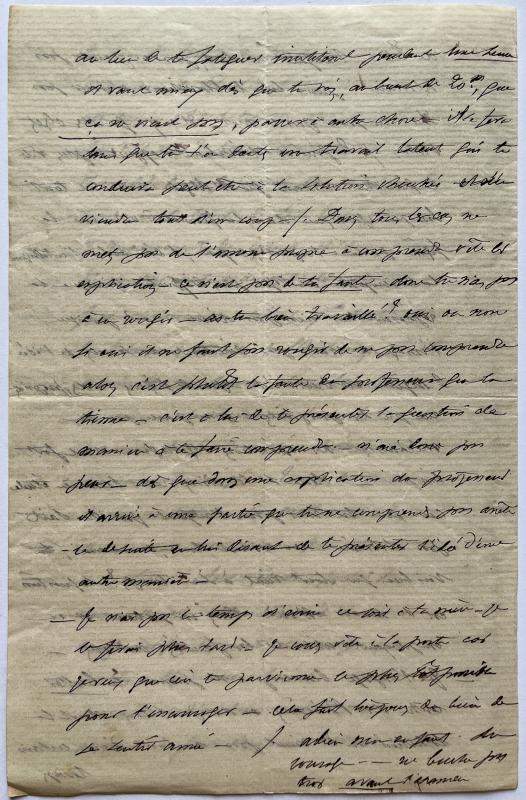 au lieu de te fatiguer inutilement pendant une heure
il vaut mieux dès que tu vois, au bout de 20m, que
ça ne vient pas, passer à autre chose. Il se fera
sans que tu t'en doutes un travail latent qui te
conduira peut être à la solution cherchée et elle
viendra tout d'un coup — Dans tous les cas ne
mets pas de l'amour propre à comprendre vite les
explications — ce n'est pas de ta faute donc tu n'as pas
à en rougir — as tu bien travaillé? oui ou non
si oui il ne faut pas rougir de ne pas comprendre
alors c'est plutôt la faute du professeur que la
tienne — c'est à lui de te présenter la question de
manière à te faire comprendre — n'aie donc pas
peur — dès que dans une explication du professeur
il arrive à une partie que tu ne comprends pas arrête
-le de suite en lui disant de te présenter l'idée d'une
autre manière —
— Je n'ai pas le temps d'écrire ce soir à ta mère — je
le ferai plus tard — Je cours vite à la poste car
je veux que ceci te parvienne le plus tôt possible
pour t'encourager — cela fait toujours du bien de
se sentir aimé — adieu mon enfant du
courage — ne bûche pas
trop avant l'examen